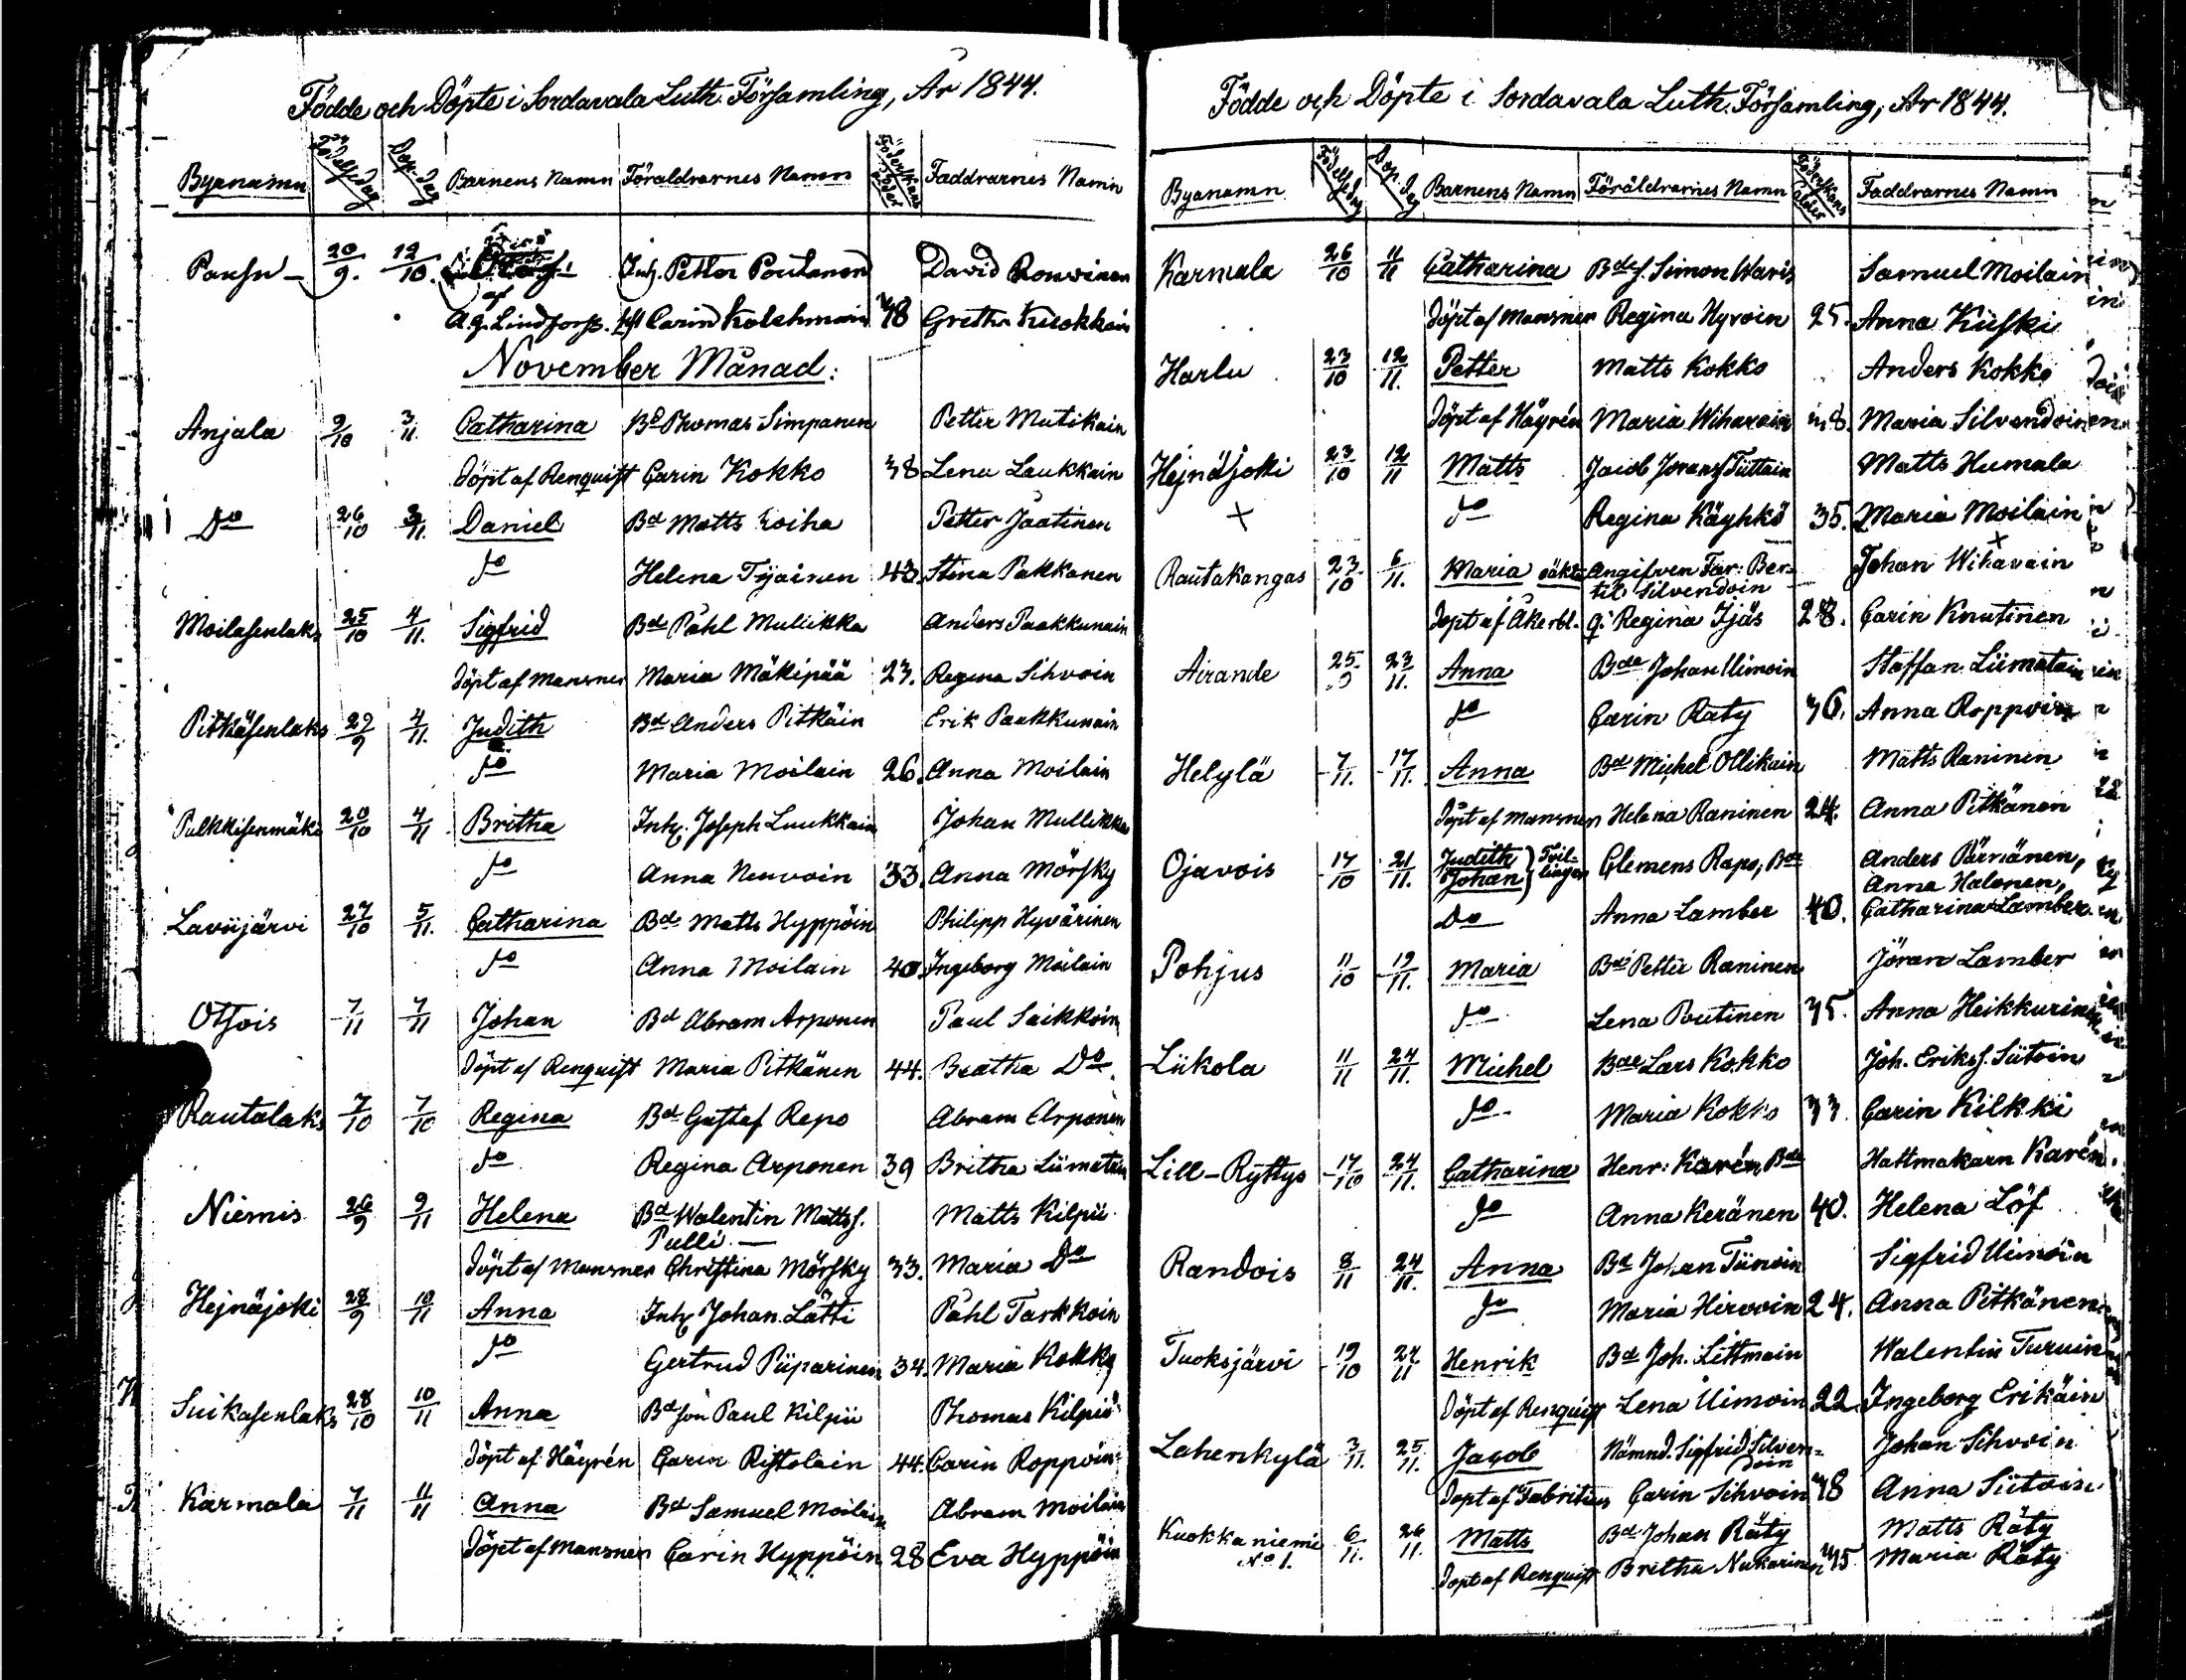 Födde och Döpte i Sordavala Luth. Församling, År 1844.
Byanamn Födelsedag Dop-dag Barnens Namn Föräldrarnes Namn Föderskans ålder Faddrarnes Namn
20/9. 12/10. Inh. Petter Poutanen David Rouvinen
af A.g. Lindforss. hst Carin Kolehmain 48 Gretha Kuokkain
November Månad:
Anjala 9/10 3/11. Catharina Bd Thomas Simpanen Petter Mutikain
Döpt af Renquist Carin Kokko 38 Lena Laukkain
Do 26/10 3/11. Daniel Bd Matts Roiha Petter Jaatinen
do Helena Tyäinen 43. Stina Pakkanen
Moilasenlaks 25/10 4/11. Sigfrid Bde Påhl Mulikka Anders Paakkunain
Döpt af Mansner Maria Mäkipää 23. Regina Sihvoin
Pitkäsenlaks 29/9 4/11. Judith Bd Anders Pitkäin Erik Paakkunain
do Maria Moilain 26. Anna Moilain
Pulkkisenmäki 20/10 4/11 Britha Inh. Joseph Luukkain Johan Mullikka
do Anna Neuvoin 33. Anna Mörsky
Lavijärvi 27/10 5/11. Catharina Bde Matts Hyppöin Philipp Hyvärinen
do Anna Moilain 40. Ingeborg Moilain
Otsois 7/11 7/11 Johan Bd Abram Arponen Paul Saikkoin
Döpt af Renquist Maria Pitkänen 44. Beatha Do
Rautalaks 7/10 7/10 Regina Bd Gustaf Repo Abram Arponen
do Regina Arponen 39 Britha Liimatain
Niemis 26/9 9/11 Helena Bd Walentin Mattss. Matts Kilpii
Pulli
Döpt af Mansner Christina Mörsky 33. Maria Do
Hejnäjoki 28/9 10/11 Anna Inh. Johan Lätti Påhl Tarkkoin
do Gertrud Piiparinen 34. Maria Kokko
Suikasenlaks 28/10 10/11 Anna Bdson Paul Kilpii Thomas Kilpiö
Döpt af Häyrén Carin Ristolain 44. Carin Roppoin
Karmala 7/11 11/11 Anna Bd Samuel Moilain Abram Moilain
Döpt af Mansner Carin Hyppöin 28 Eva Hyppöin
Födde och Döpte i Sordavala Luth. Församling, År 1844.
Byanamn Födelsedag Dop-dag Barnens Namn Föräldrarnes Namn Föderskans ålder Faddrarnes Namn
Karmala 26/10 11/11 Catharina Bdes. Simon Waris Samuel Moilain
Döpt af Mansner Regina Hyvoin 25. Anna Kiiski
Harlu 23/10 12/11. Petter Matts Kokko Anders Kokko
Döpt af Häyrén Maria Wihavain 48. Maria Silvendoinen
Hejnäjoki 23/10 12/11 Matts Jacob Joranss Tiittain Matts Humala
do Regina Käyhkö 35. Maria Moilain
Rautakangas 23/10 6/11. Maria oäkta Angifven Far: Ber- Johan Wihavain
til Silvendoin
Döpt af Åkerbl. q: Regina Ijäs 28. Carin Knutinen
Airande 25 23/11. Anna Bde Johan Uimoin Staffan Liimatain
do Carin Räty 36. Anna Roppoin
Helylä 7/11. 17/11. Anna Bde Michel Ollikain Matts Raninen
Döpt af Mansner Helena Raninen 24. Anna Pitkänen
Ojavois 17/10 21/11. Judith Johan Tvil-lingar Clemens Rapo, Bde Anders Pärnänen,
Anna Halonen,
Do Anna Lamber 40. Catharina Lamber
Pohjus 11/10 19/11. Maria Bde Petter Raninen Jöran Lamber
do Lena Poutinen 35. Anna Heikkurin
Liikola 11/11 24/11. Michel Bde Lars Kokko Joh. Erikss. Siitoin
do Maria Kokko 33. Carin Kilkki
Lill-Ryttys 17/10 24/11. Catharina Henr: Karén Bde Hattmakarn Karén
do Anna Keränen 40. Helena Löf
Randois 8/11 24/11. Anna Bd Johan Tiinoin Sigfrid Uimoin
do Maria Hirvoin 24. Anna Pitkänen
Tuoksjärvi 19/10 24/11 Henrik Bd Joh. Littmain Walentin Turuin
Döpt af Renquist Lena Uimoin 22. Ingeborg Erikäin
Lahenkylä 3/11. 25/11. Jacob Nämnd. Sigfrid Silven- Johan Sihvoin
doin
Döpt af Fabritius Carin Sihvoin 48 Anna Siitoin
Kuokkaniemi 6/11. 26/11. Matts Bd Johan Räty Matts Räty
No 1. Döpt af Renquist Britha Nukarinen 45 Maria Räty